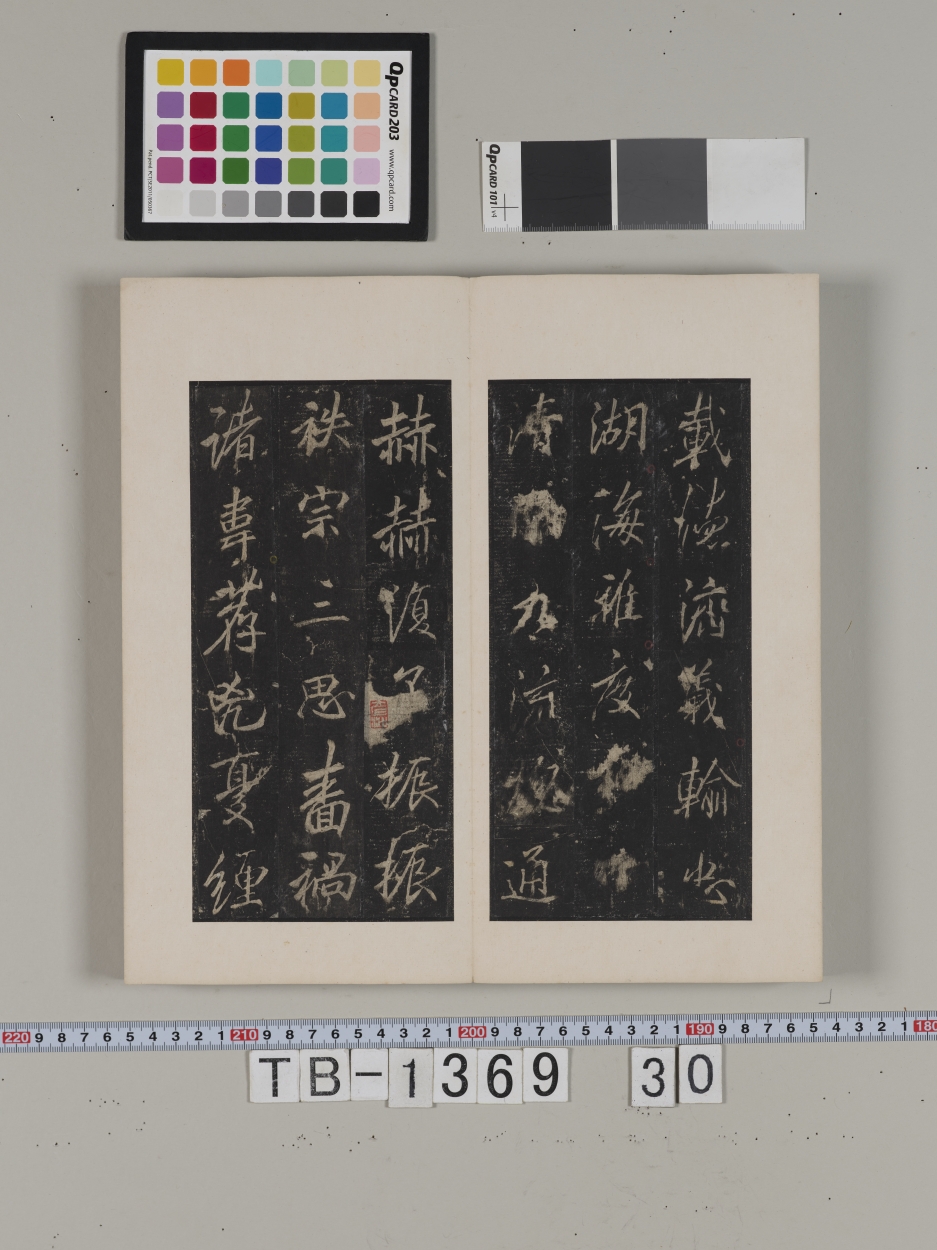 載德濟義輸忠
湖海雅度
清九流通
赫赫振振
秩宗三思畫禍
諸韋荐兇夏經
QpCARD 203 www.qpcard.com
QpCARD 101 v4
220 9 8 7 6 5 4 3 2 1 210 9 8 7 6 5 4 3 2 1 200 9 8 7 6 5 4 3 2 1 190 9 8 7 6 5 4 3 2 1 180
TB-1369 30